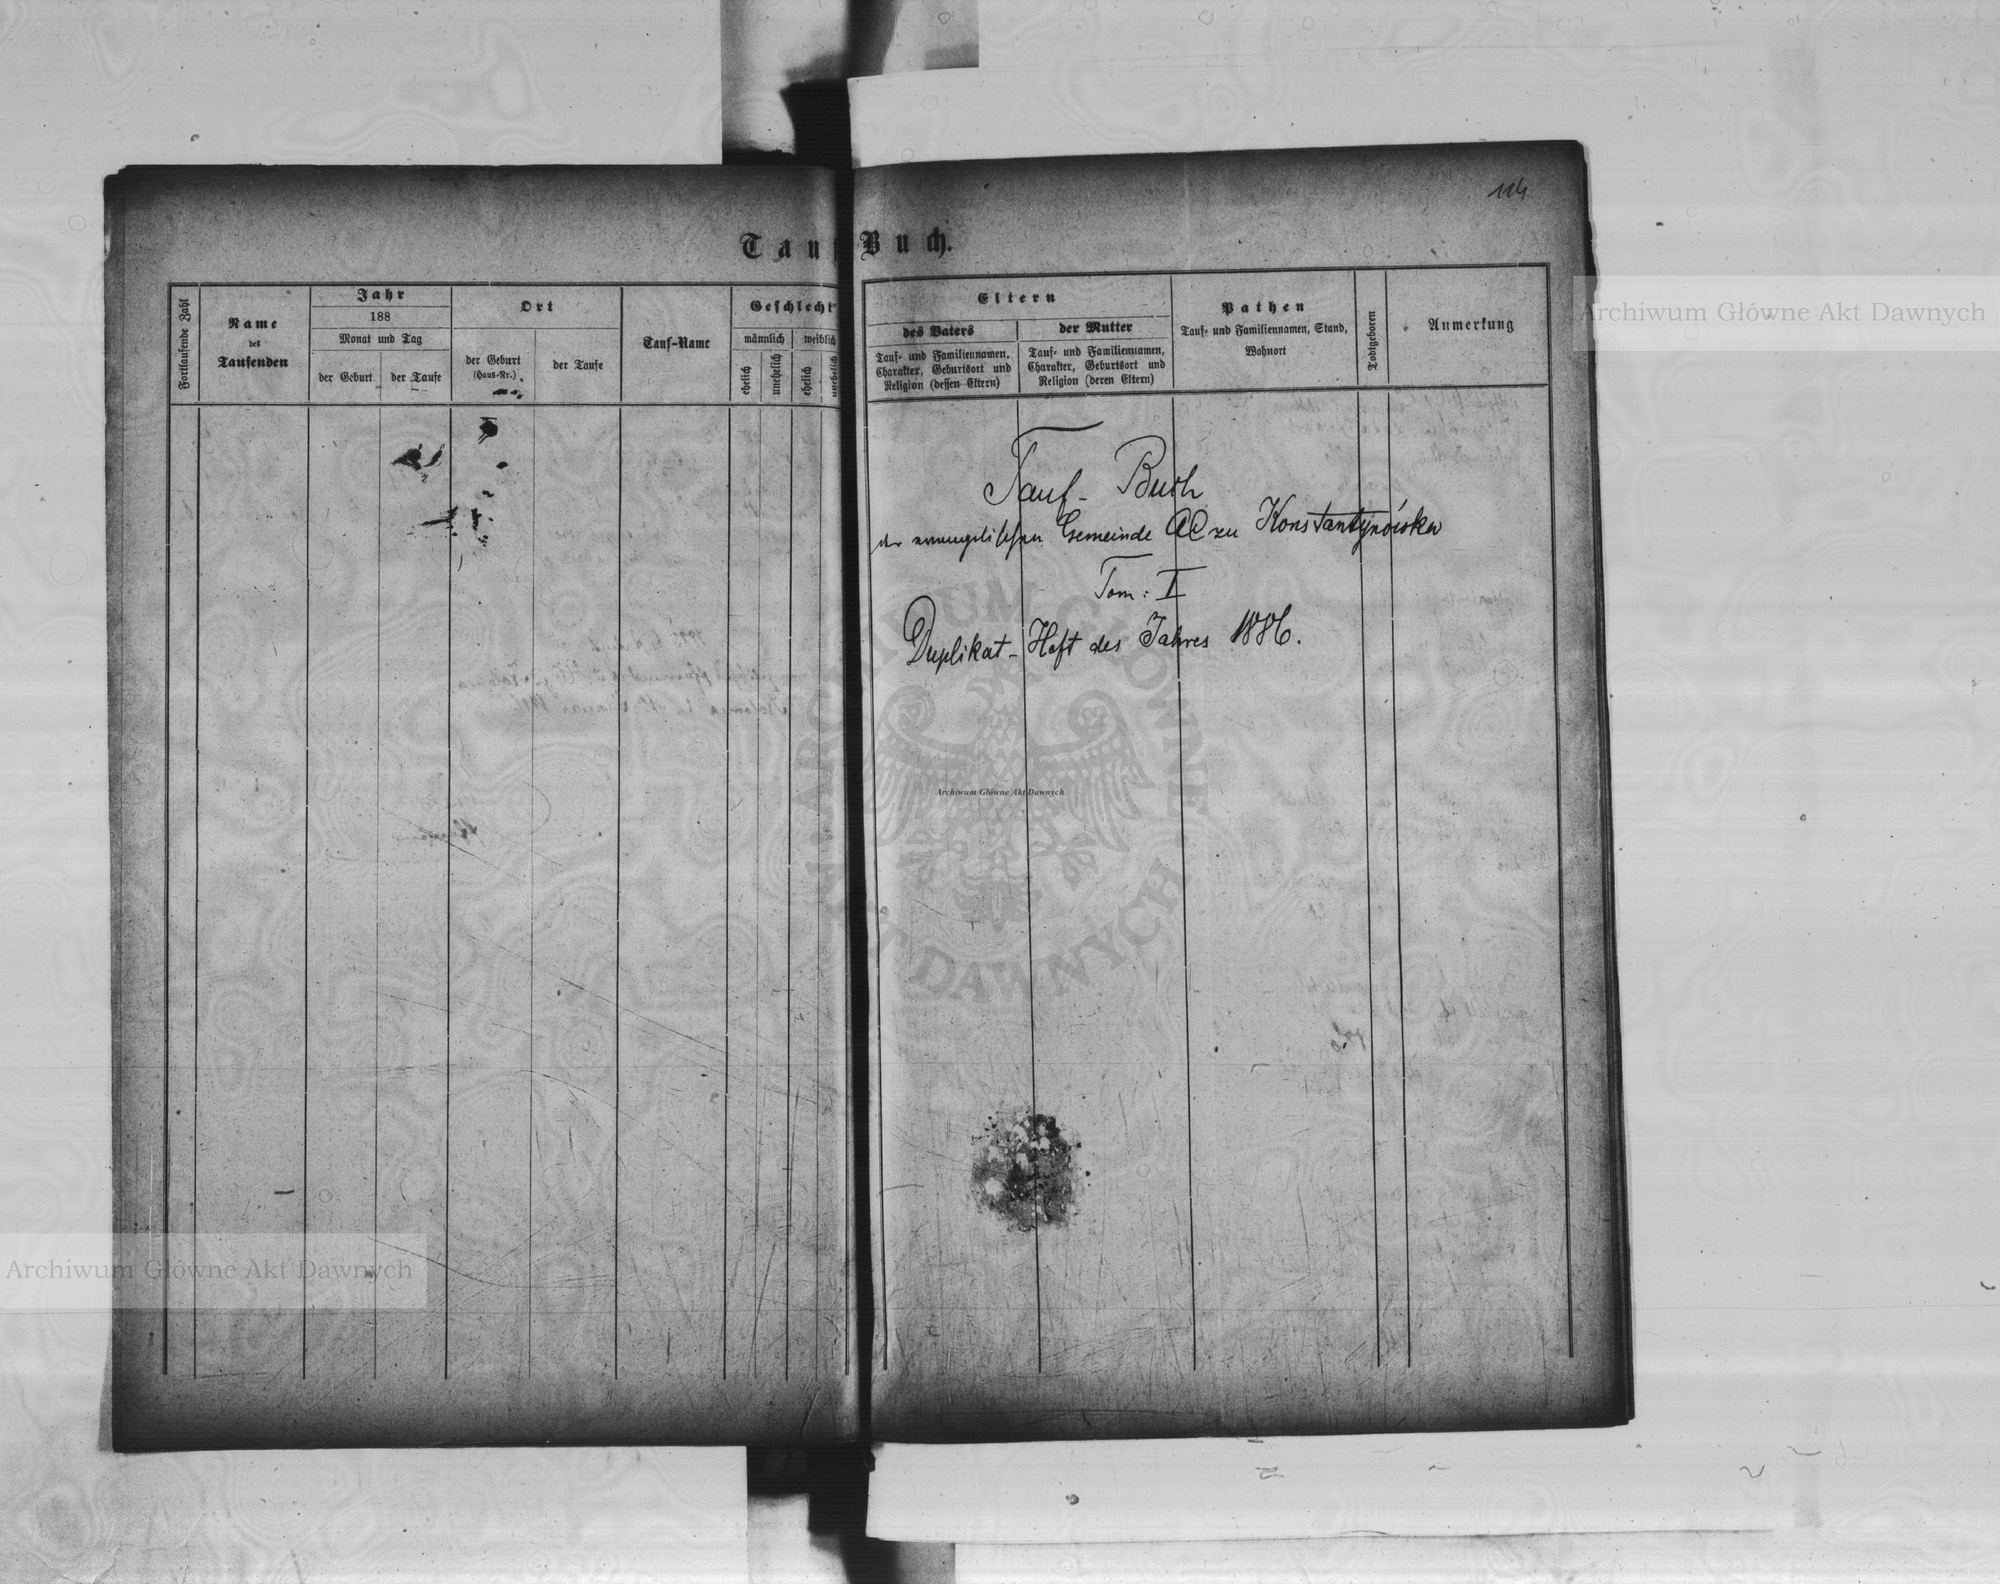 114
Tauf Buch.
Fortlaufende Zahl
Name
des
Taufenden
Jahr
188
Monat und Tag
der Geburt
der Taufe
Ort
der Geburt
(Haus-Nr.)
der Taufe
Tauf-Name
Geschlecht
männlich
weiblich
ehelich
unehelich
ehelich
unehelich
Eltern
des Vaters
Tauf- und Familiennamen,
Charakter, Geburtsort und
Religion (dessen Eltern)
der Mutter
Tauf- und Familiennamen,
Charakter, Geburtsort und
Religion (deren Eltern)
Pathen
Tauf- und Familiennamen, Stand,
Wohnort
Todtgeboren
Anmerkung
Tauf- Buch
der evangelischen Gemeinde AC zu Konstantynówka
Tom: I
Duplikat-Heft des Jahres 1886.
Archiwum Główne Akt Dawnych
Archiwum Główne Akt Dawnych
ARCHIWUM GŁÓWNE
AKT DAWNYCH
Archiwum Główne Akt Dawnych